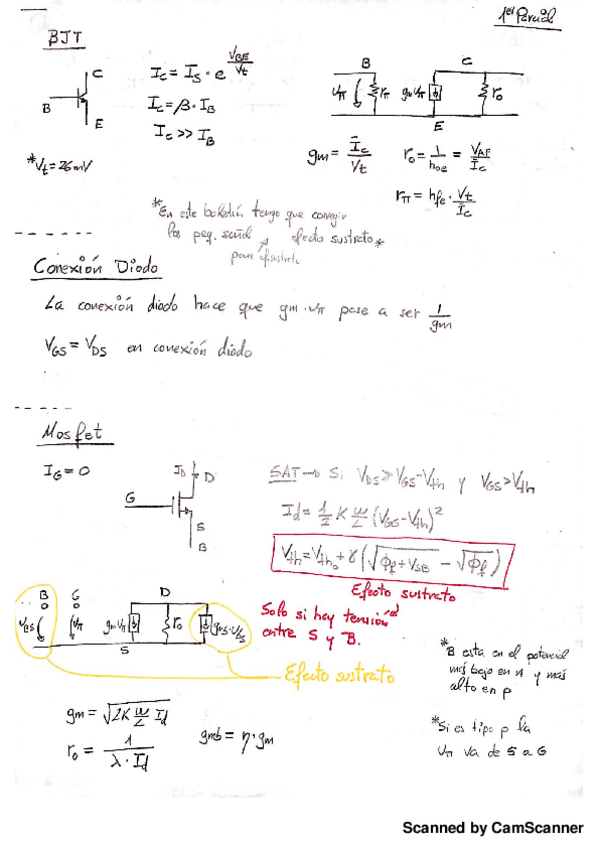 1er Parcial
BJT
C
B
E
Ic = Is · e^(VBE/Vt)
Ic = β · IB
Ic >> IB
*Vt = 26mV
B
C
Vπ
rπ
gmVπ
ro
E
gm = Ic/Vt
ro = 1/hoe = VAF/Ic
rπ = hfe · Vt/Ic
*En este boletín tengo que corregir
los peq. señal efecto sustrato*
para efsustrato
Conexión Diodo
La conexión diodo hace que gm·Vπ pase a ser 1/gm
VGS = VDS en conexión diodo
Mosfet
IG = 0
ID
D
G
S
B
SAT → Si VDS ≥ VGS - Vth y VGS > Vth
Id = 1/2 K W/L (VGS - Vth)²
Vth = Vth0 + γ (√(ϕf + VSB) - √ϕf)
Efecto sustrato
Solo si hay tensión
entre S y B.
B
G
D
VBS
Vπ
gmVπ
ro
S
Efecto sustrato
*B esta en el potencial
más bajo en n y más
alto en p
gm = √(2K W/L Id)
ro = 1/(λ · Id)
gmb = η · gm
*Si es tipo p la
Vπ va de S a G
Scanned by CamScanner